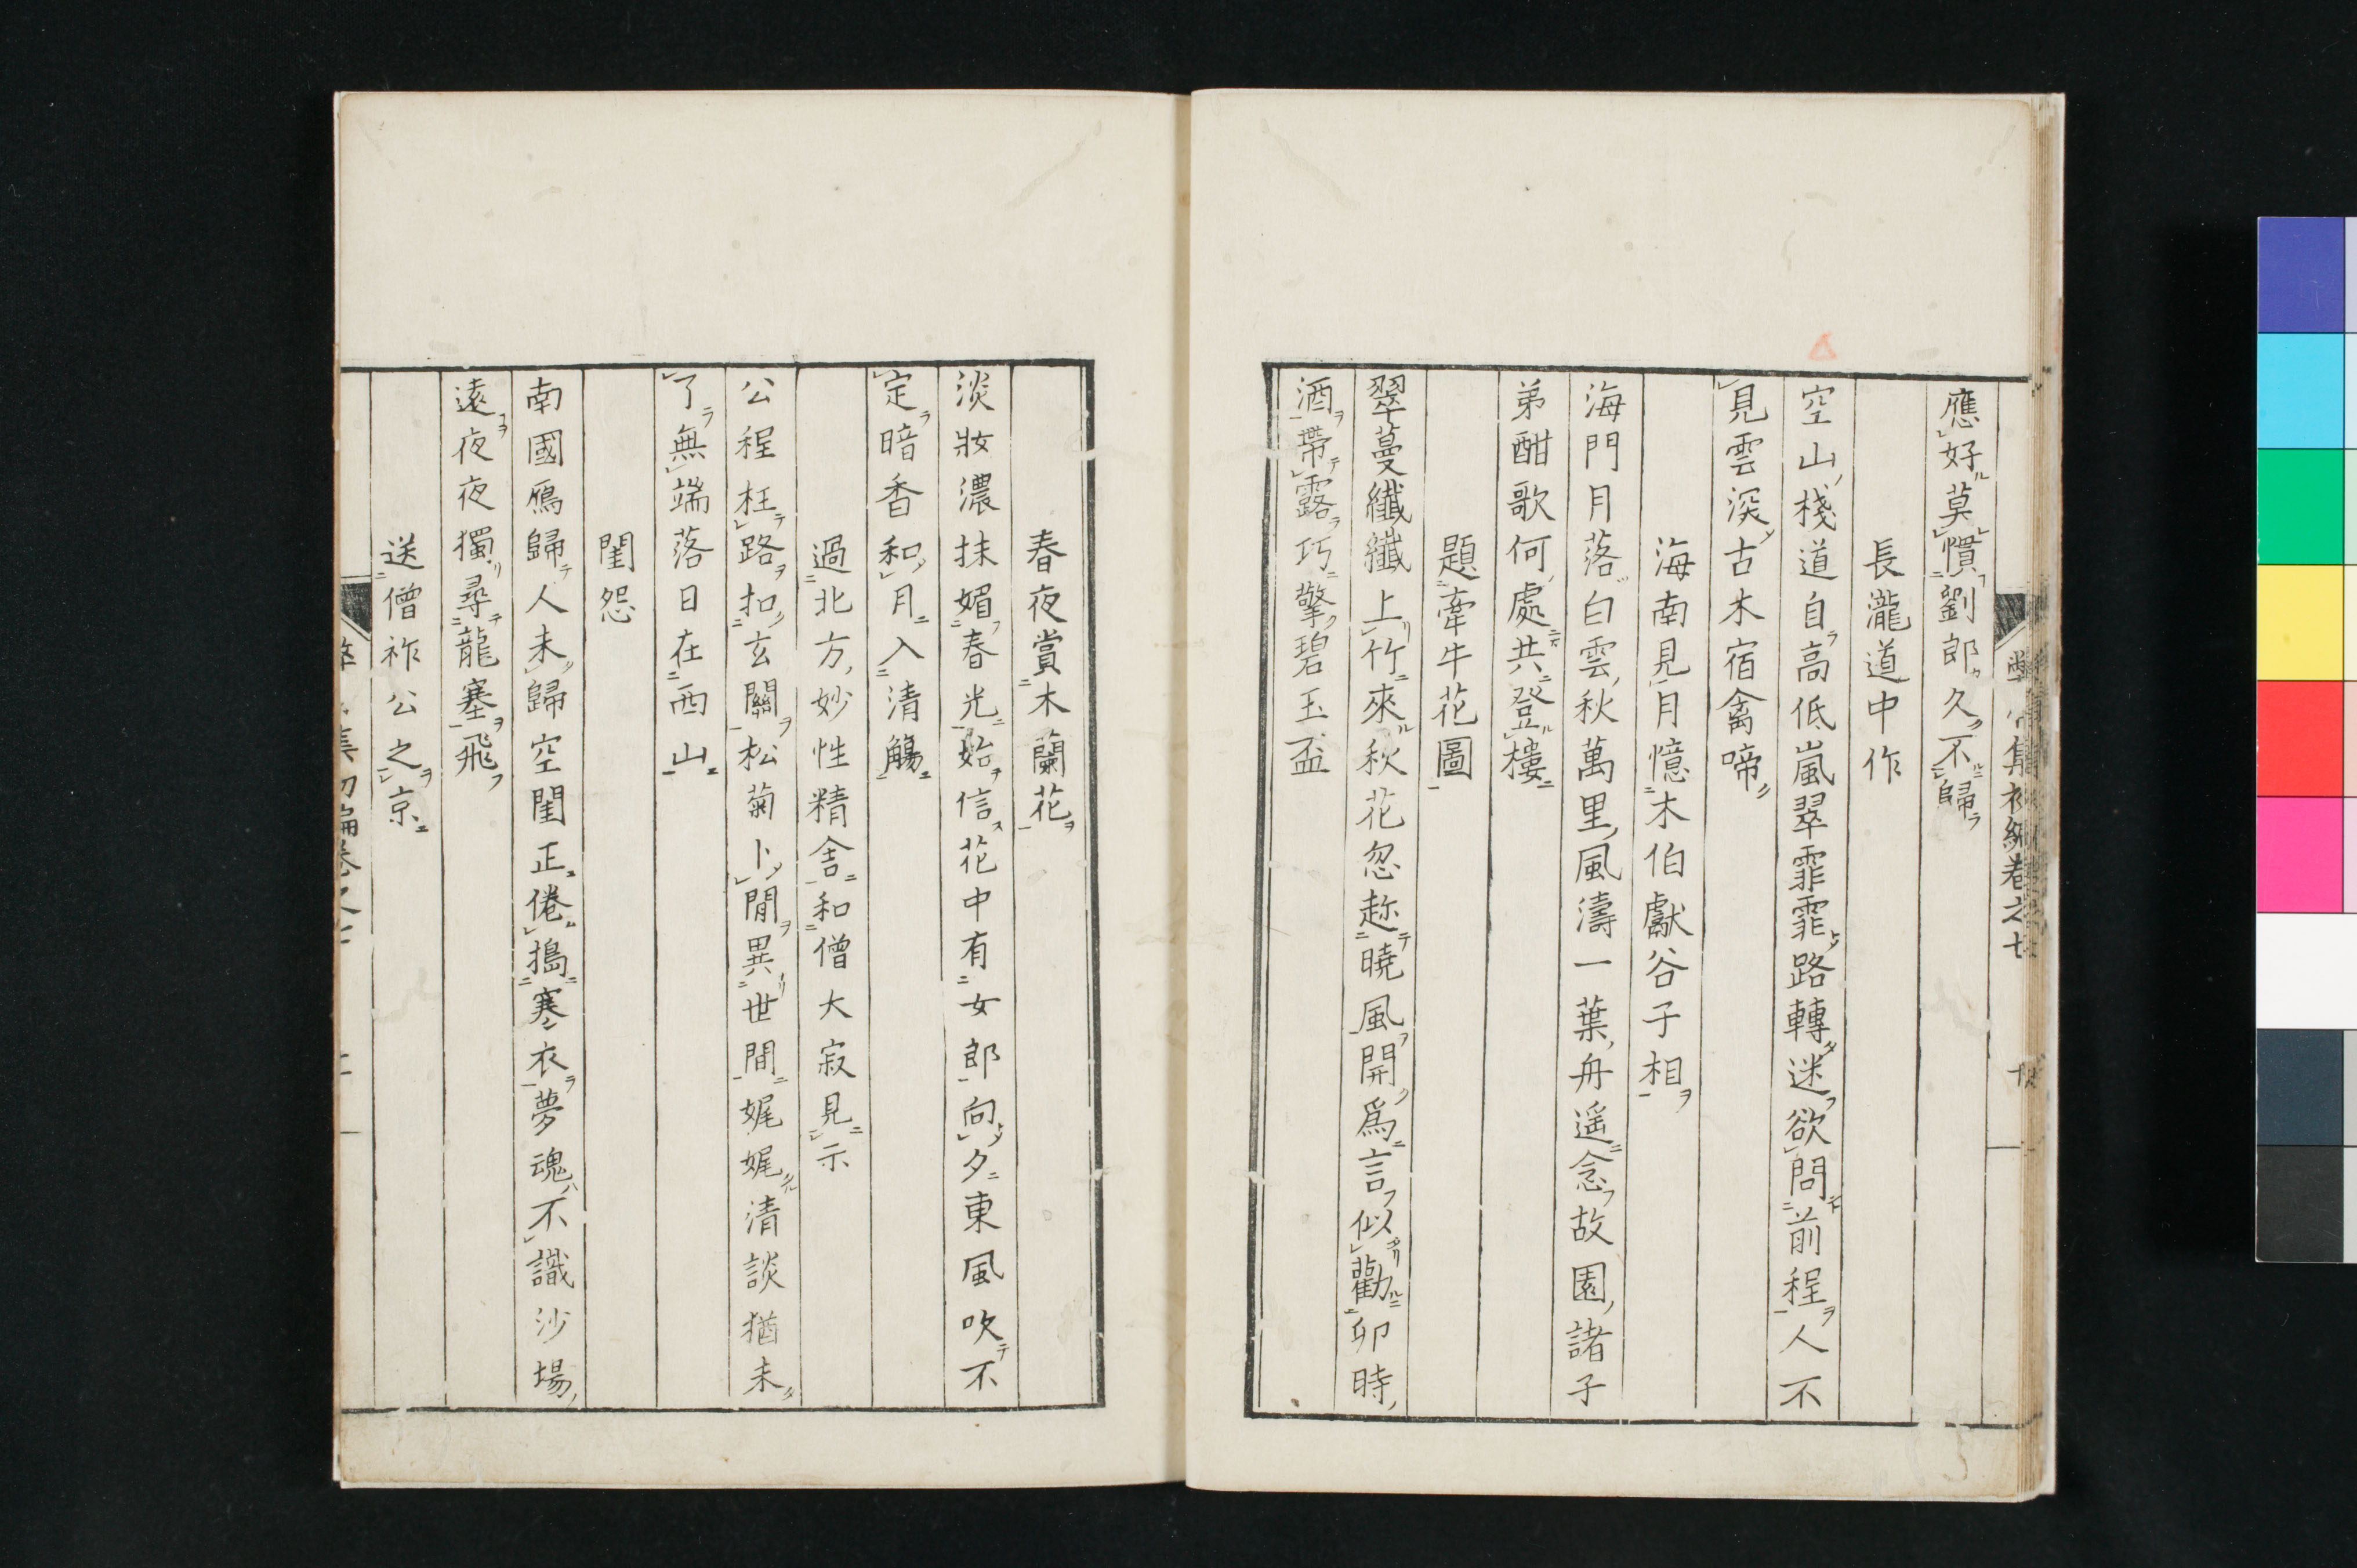 應好莫慣劉郎久不歸
長瀧道中作
空山棧道自高低嵐翠霏霏路轉迷欲問前程人不
見雲深古木宿禽啼
海南見月憶木伯獻谷子相
海門月落白雲秋萬里風濤一葉舟遥念故園諸子
弟酣歌何處共登樓
題牽牛花圖
翠蔓纎纎上竹來秋花忽趂曉風開爲言似勸卯時
酒帶露巧擎碧玉盃
春夜賞木蘭花
淡妝濃抹媚春光始信花中有女郎向夕東風吹不
定暗香和月入清觴
過北方妙性精舎和僧大寂見示
公程枉路扣玄關松菊卜閒異世間娓娓清談猶未
了無端落日在西山
閨怨
南國鴈歸人未歸空閨正倦搗寒衣夢魂不識沙場
遠夜夜獨尋龍塞飛
送僧祚公之京